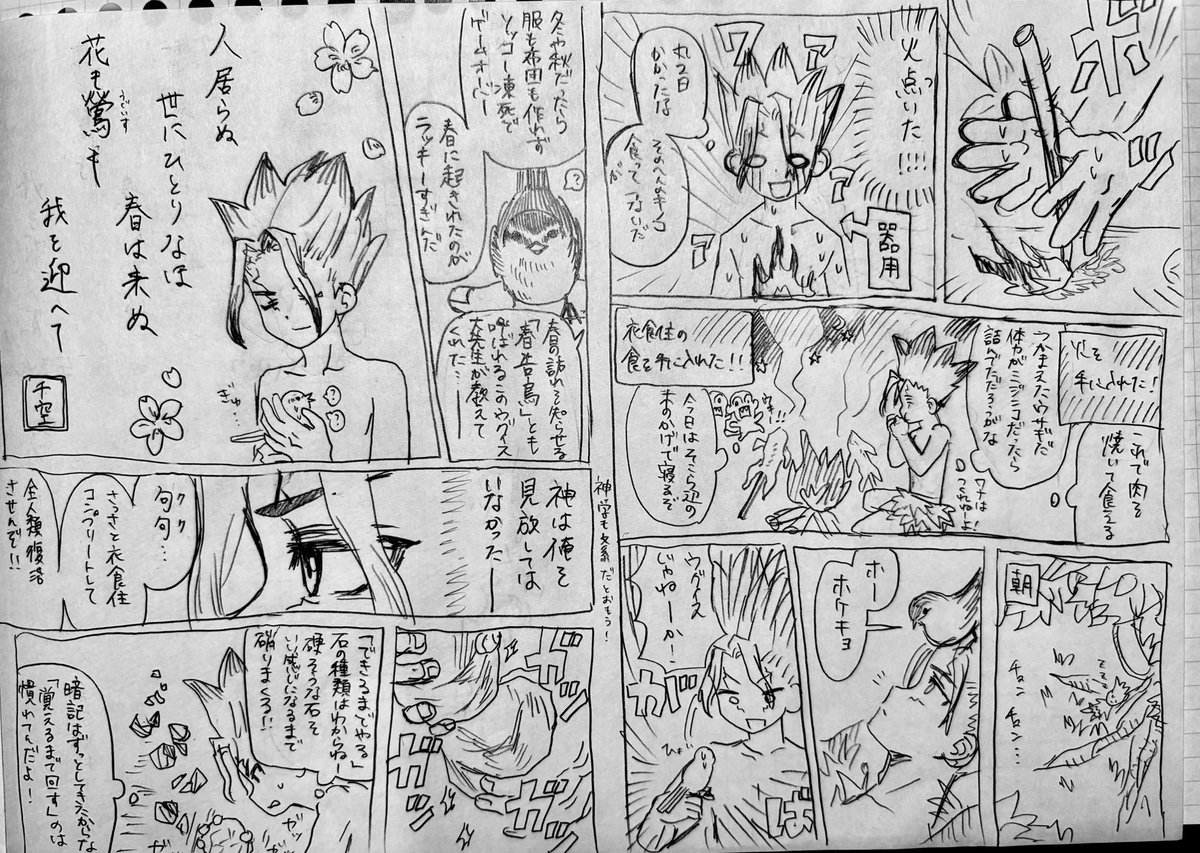 ボッ
火点いた!!!!
ワァ
ァ
丸2日
かかったな
そのへんのキノコ
食ってつないだ
が
器用
火を
手に入れた!
これで肉を
焼いて食える
つかまえたウサギだ
体力がミジンコだったら
詰んでただろうがな
ワナは
つくれねーよ!
衣食住の
食を手に入れた!!
ウキ!!
今日はそこら辺の
木のかげで寝るぞ
朝
チュン
チュン…
ホー
ホケキョ
ウグイス
じゃねーか!
ガ
ば
冬や秋だったら
服も布団も作れず
ソッコー凍死で
ゲームオーバー
春に起きれたのが
ラッキーすぎんだ
?
春の訪れを知らせる
「春告鳥」とも
呼ばれるこのウグイス
大先生が教えて
くれた…
人居らぬ
世にひとりなほ
春は来ぬ
花も鶯も
うぐいす
我を迎へて
千空
ぎゅ…
?
?
神は俺を
見放しては
いなかった
神学も文系だとおもう!
句句…
クク
さっさと衣食住
コンプリートして
全人類復活
させんぞ!!
ガッ
ガッ
「できるまでやる」
石の種類はわからねー
硬そうな石を
いい感じになるまで
研りまくる!!
暗記はずっとしてきたからな
「覚えるまで回す」のは
慣れてんだよ!
ガッ